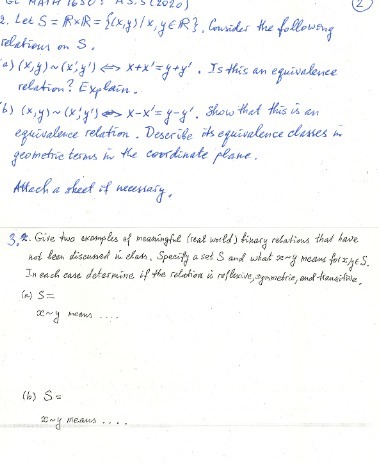 GC MATH 1650: AS.5 (2020) 2
2. Let S = ℝ×ℝ = {(x,y) / x, y ∈ ℝ}. Consider the following
relations on S.
(a) (x,y) ~ (x',y') ⇔ x+x' = y+y'. Is this an equivalence
relation? Explain.
(b) (x,y) ~ (x',y') ⇔ x-x' = y-y'. Show that this is an
equivalence relation. Describe its equivalence classes in
geometric terms in the coordinate plane.
Attach a sheet if necessary.
3. Give two examples of meaningful (real world) binary relations that have
not been discussed in class. Specify a set S and what x~y means for x,y∈S.
In each case determine if the relation is reflexive, symmetric, and transitive.
(a) S=
x~y means ....
(b) S=
x~y means ....